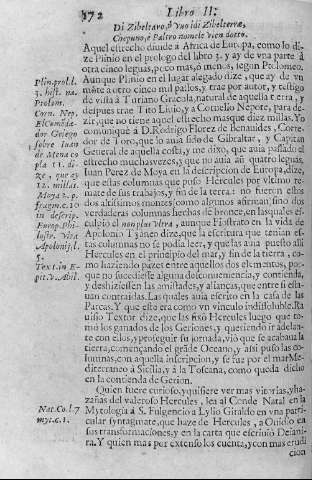 172 Libro II:
Aquel estrecho diuide a Africa de Europa, como lo di-
ze Plinio en el prologo del libro 3. y ay de vna parte a
otra cinco leguas, poco mas, o menos, segun Ptolomeo.
Aunque Plinio en el lugar alegado dize, que ay de vn
môte a otro cinco mil passos, y trae por autor, y testigo
de vista a Turiano Gracula, natural de aquella tierra, y
despues trae Tito Liuio, y a Cornelio Nepote, para de-
zir, que no tiene aquel estrecho mas que diez millas. Yo
comuniquè a D. Rodrigo Florez de Benauides, Corre-
dor de loro, que lo auia sido de Gibraltar, y Capitan
General de aquella costa, y me dixo, que auia passado el
estrecho muchas vezes, y que no auia aũ quatro leguas,
Iuan Perez de Moya en la descripcion de Europa, dize,
que estas colunas que puso Hercules por vltimo re-
mate de sus trabajos, y fin de la tierra: no fueron ellos
dos altissimos montes, como algunos afirman, sino dos
verdaderas colunas hechas de bronce, en las quales es-
culpio el non plus vltra, aunque Fiostrato en la vida de
Apolonio Tyaneo dize, que la escritura que tenian es-
tas colunas no se podia leer, y que las auia puesto alli
Hercules en el principio del mar, y fin de la tierra, co-
mo haziendo pazes entre aquellos dos elementos, por-
que no sucediesse alguna desconueniencia, y contienda,
y deshiziessen las amistades, y alianças, que entre si esta-
uan contraidas. Las quales auia escrito en la casa de las
Parcas. Y que esto era como vn vinculo indissoluble. Ra-
uisio Textor dize, que las fixò Hercules luego que to-
mò los ganados de los Geriones, y queriendo ir adelan-
te con ellos, y proseguir su jornada, viò que se acabaua la
tierra, començando el grãde Oceano, y assi puso las co-
lunas, con aquella inscripcion, y se fue por el mar Me-
diterraneo à Sicilia, y à la Toscana, como queda dicho
en la contienda de Gerion.
Quien fuere curioso, y quisiere ver mas vitorias, y ha-
zañas del valeroso Hercules, lea al Conde Natal en la
Mytologia à S. Fulgencio a Lylio Giraldo en vna parti-
cular syntagmate, que haze de Hercules, a Ouidio en
sus transformaciones, y en la carta que escriuio Deiani-
ra. Y quien mas por extenso los cuenta, y con mas erudi
cion
Plin. prol. l.
3. hist. na.
Ptolom.
Corn. Nep.
El Comẽda-
dor Griego
sobre Iuan
de Mena co
pla 11. di-
ze, que ay
12. millas.
Moya 2. p.
fragm. c. 10
in descrip.
Europ. Phi-
lostr. vita
Apolonij. l.
5.
Text. in E-
pit. v. Abil.
Nat. Co. l. 7
myt. c. 1.